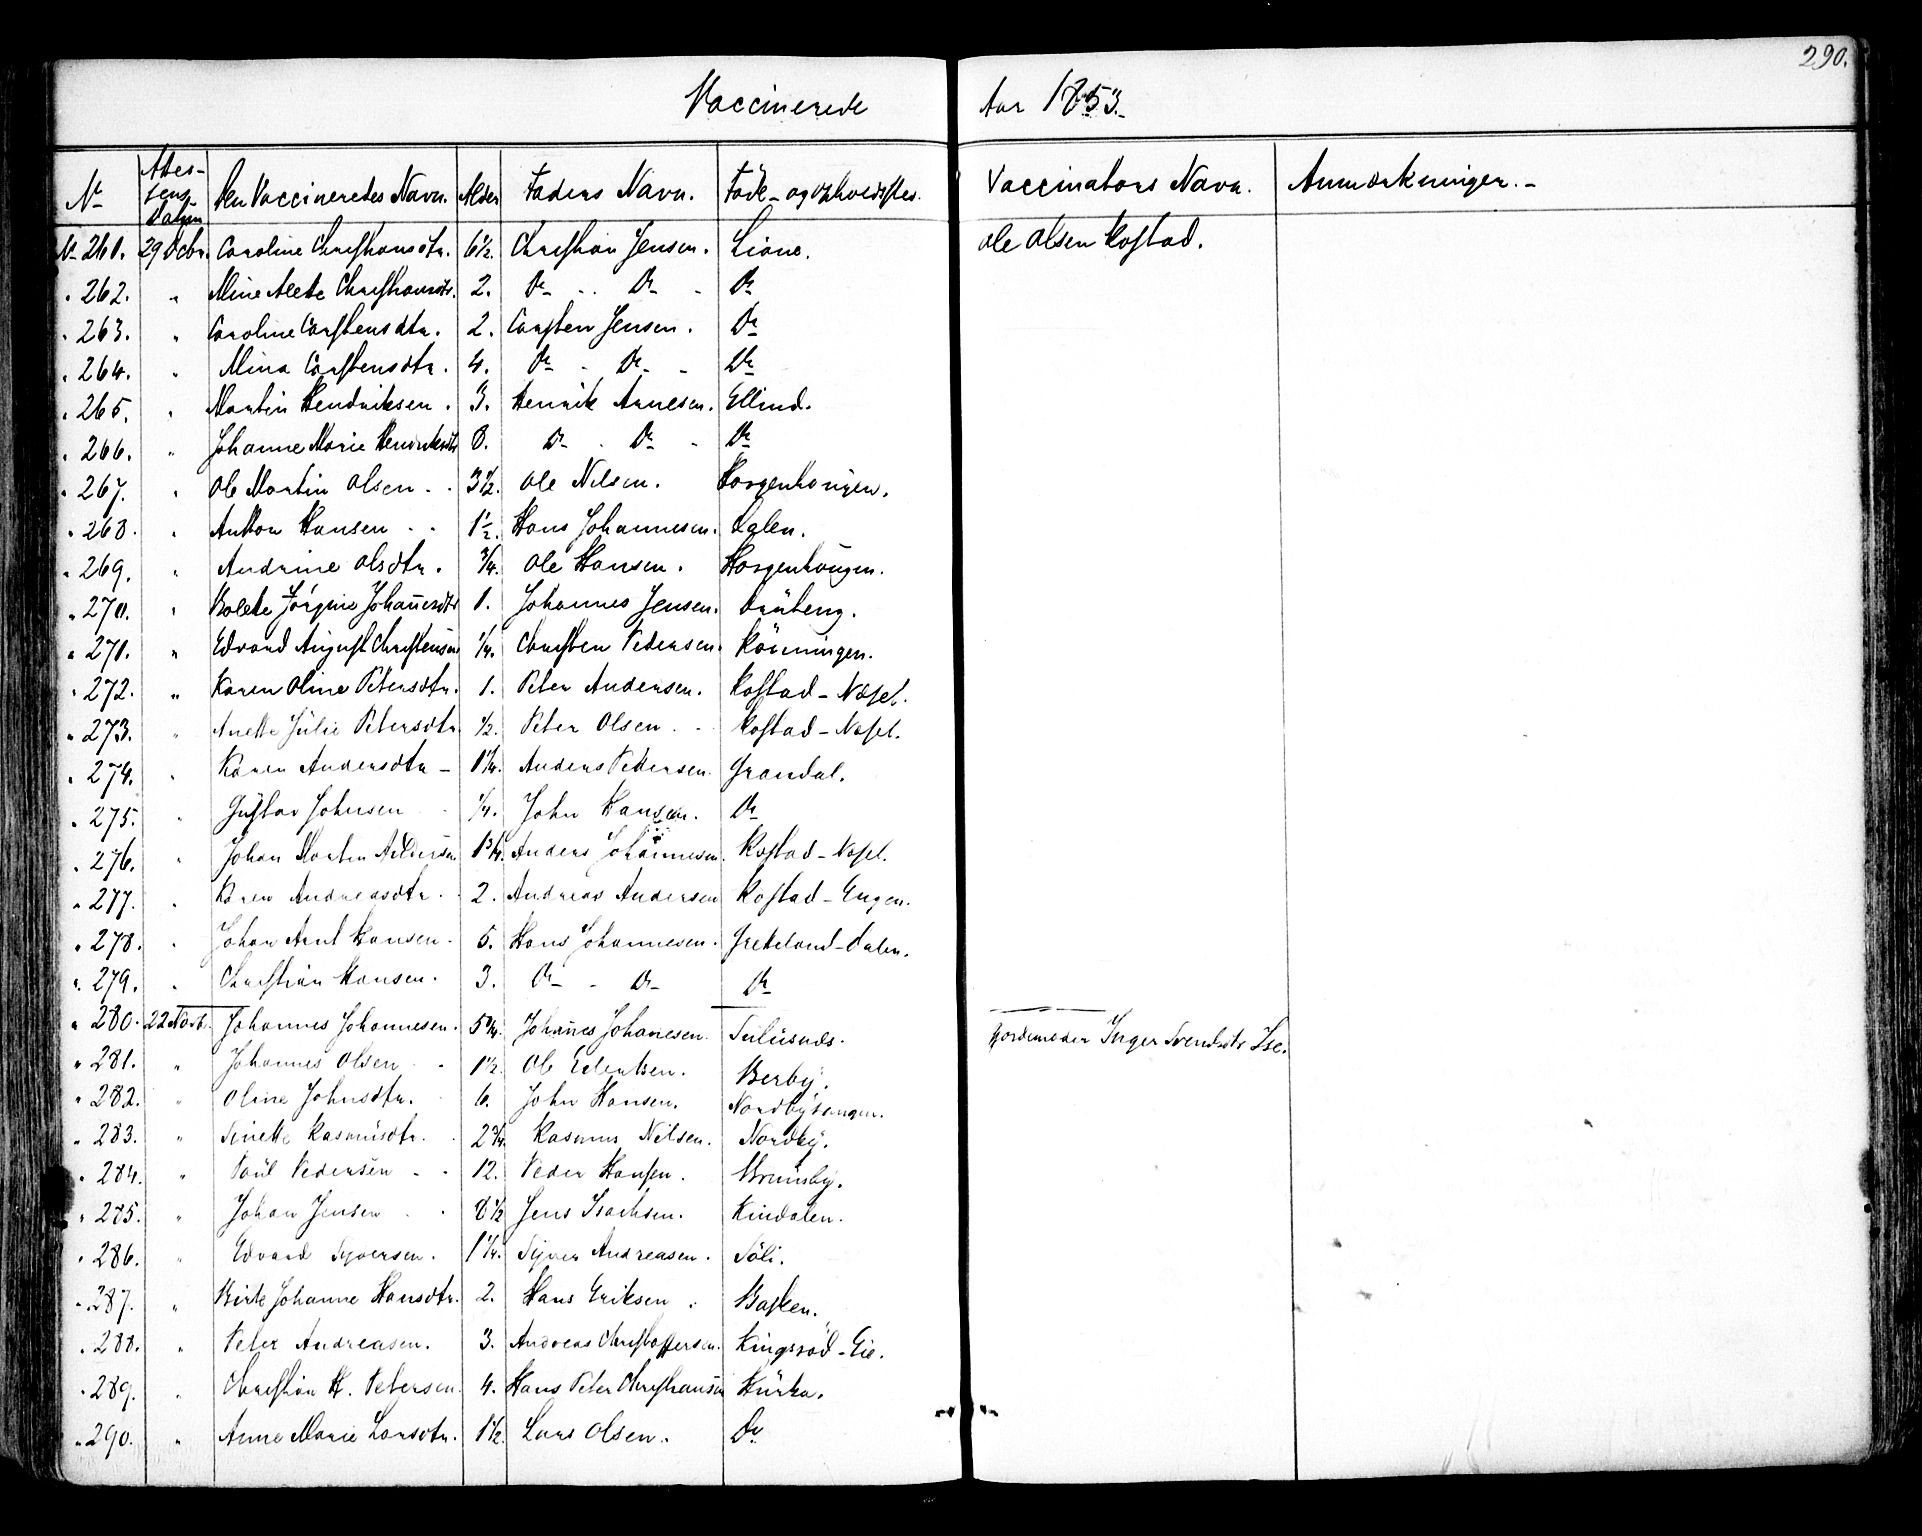 290.
Vaccinerede Aar 1853.
No Attes- tens Datum Den Vaccineredes Navn. Alder Faders Navn. Føde- og opholdssted. Vaccinators Navn. Anmærkninger.
No 261. 29 Octbr. Caroline Christiansdtr. 6½. Christian Jensen. Liane. Ole Olsen Kostad.
" 262. " Mine Alette Christiansdtr. 2. Do - Do - Do
" 263. " Caroline Carstensdtr. 2. Carsten Jensen. Do
" 264. " Mina Carstensdtr. 4. Do - Do - Do
" 265. " Martin Hendriksen. 3. Henrik Arnesen. Ellind.
" 266. " Johanne Marie Henriksdtr 8. Do - Do - Do
" 267. " Ole Martin Olsen. 3½. Ole Nilsen. Horgenhougen.
" 268. " Anton Hansen 1½. Hans Johannesen. Dalen.
" 269. " Andrine Olsdtr. ¾. Ole Hansen. Horgenhougen.
" 270. " Bolette Jörgine Johanesdtr 1. Johannes Jensen.
" 271. " Edvard August Christensen ¼. Christen Pedersen. Rönningen.
" 272. " Karen Oline Petersdtr. 1. Peter Andersen. Kostad - Næset.
" 273. " Anette Julie Petersdtr. ½. Peter Olsen. Kostad - Næset.
" 274. " Karen Andersdtr - 1¼. Anders Pedersen. Grandal.
" 275. " Gustav Johnsen ¼. John Hansen. Do
" 276. " Johan Martin Andersen 1¾. Anders Johannesen. Kostad - Næset.
" 277. " Karen Andreasdtr. 2. Andreas Andersen Kostad - Engen.
" 278. " Johan Arnt Hansen. 5. Hans Johannesen. Grekeland - Dalen.
" 279. " Christian Hansen. 3. Do - Do Do
" 280. 22 Novb. Johannes Johannesen. 5¾. Johanes Johanesen. Tulusnæs. Gjordemoder Inger Svendsdtr Ise.
" 281. " Johannes Olsen 1½. Ole Edertsen. Berby.
" 282. " Oline Johnsdtr. 6. John Hansen. Nordbyhougen.
" 283. " Sinette Rasmusdtr. 2¾. Rasmus Nilsen. Nordby.
" 284. " Paul Pedersen 12. Peder Hansen. Brunsby.
" 285. " Johan Jensen 8½ Jens Isachsen. Kindalen.
" 286. " Edvard Syversen. 1¼. Syver Andreasen. Töli.
" 287. " Birte Johanne Hansdtr. 2. Hans Eriksen. Basken.
" 288. " Peter Andreasen. 3. Andreas Christoffersen. Kingsröd - Eie.
" 289. " Christian H. Petersen. 4. Hans Peter Christiansen Hürka.
" 290. " Anne Marie Larsdtr. 1½. Lars Olsen. Do